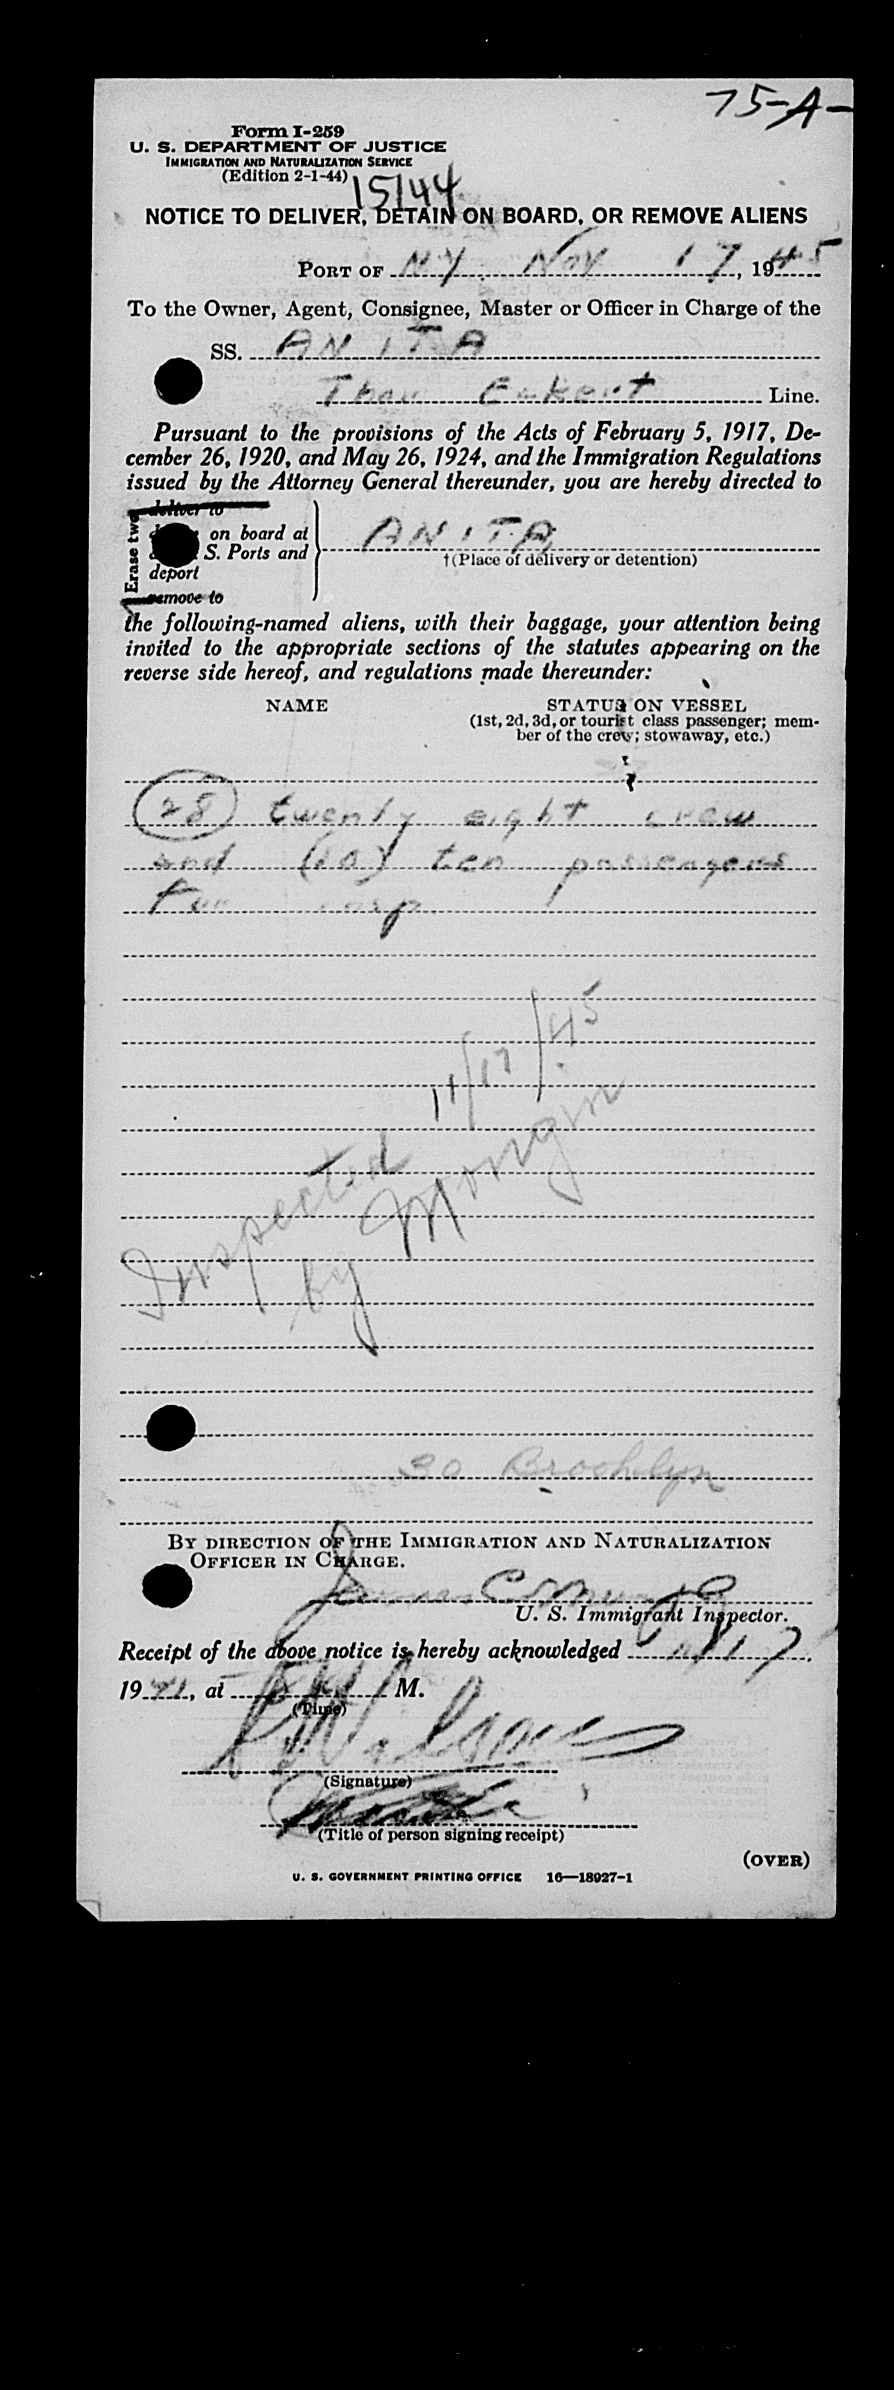 75-A-
Form I-259
U. S. DEPARTMENT OF JUSTICE
IMMIGRATION AND NATURALIZATION SERVICE
(Edition 2-1-44)
15144
NOTICE TO DELIVER, DETAIN ON BOARD, OR REMOVE ALIENS
PORT OF NY Nov 17, 1945
To the Owner, Agent, Consignee, Master or Officer in Charge of the
SS. ANITA
Thor Eckert Line.
Pursuant to the provisions of the Acts of February 5, 1917, De-
cember 26, 1920, and May 26, 1924, and the Immigration Regulations
issued by the Attorney General thereunder, you are hereby directed to
Erase two
deliver to
on board at
S. Ports and
deport
remove to
ANITA
†(Place of delivery or detention)
the following-named aliens, with their baggage, your attention being
invited to the appropriate sections of the statutes appearing on the
reverse side hereof, and regulations made thereunder:
NAME STATUS ON VESSEL
(1st, 2d, 3d, or tourist class passenger; mem-
ber of the crew; stowaway, etc.)
(28) twenty eight crew
and (10) ten passengers
for insp
Inspected 11/17/45
by Mongin
30 Brooklyn
BY DIRECTION OF THE IMMIGRATION AND NATURALIZATION
OFFICER IN CHARGE.
U. S. Immigrant Inspector.
Receipt of the above notice is hereby acknowledged 11/17,
19, at M.
(Time)
(Signature)
(Title of person signing receipt)
(OVER)
U. S. GOVERNMENT PRINTING OFFICE 16—18927-1